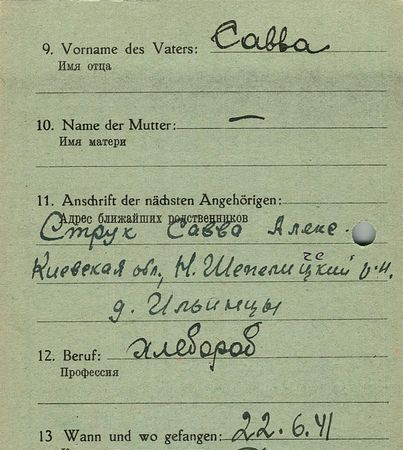 9. Vorname des Vaters: Савва
Имя отца
10. Name der Mutter: —
Имя матери
11. Anschrift der nächsten Angehörigen:
Адрес ближайших родственников
Струк Савва Алекс.
Киевская обл, Н. Шепелицкий р-н.
д. Ильинцы
12. Beruf: хлебороб
Профессия
13 Wann und wo gefangen: 22.6.41